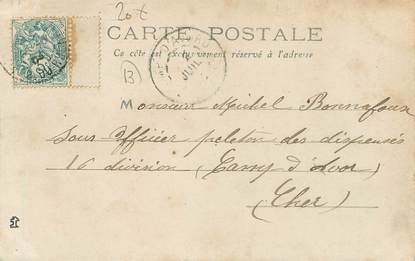 20 €
CARTE POSTALE
Ce côté est exclusivement réservé à l'adresse
B
Monsieur Michel Bonnafoux
sous officier peleton des dispensés
16 division (Camp d'Avor)
(Cher)